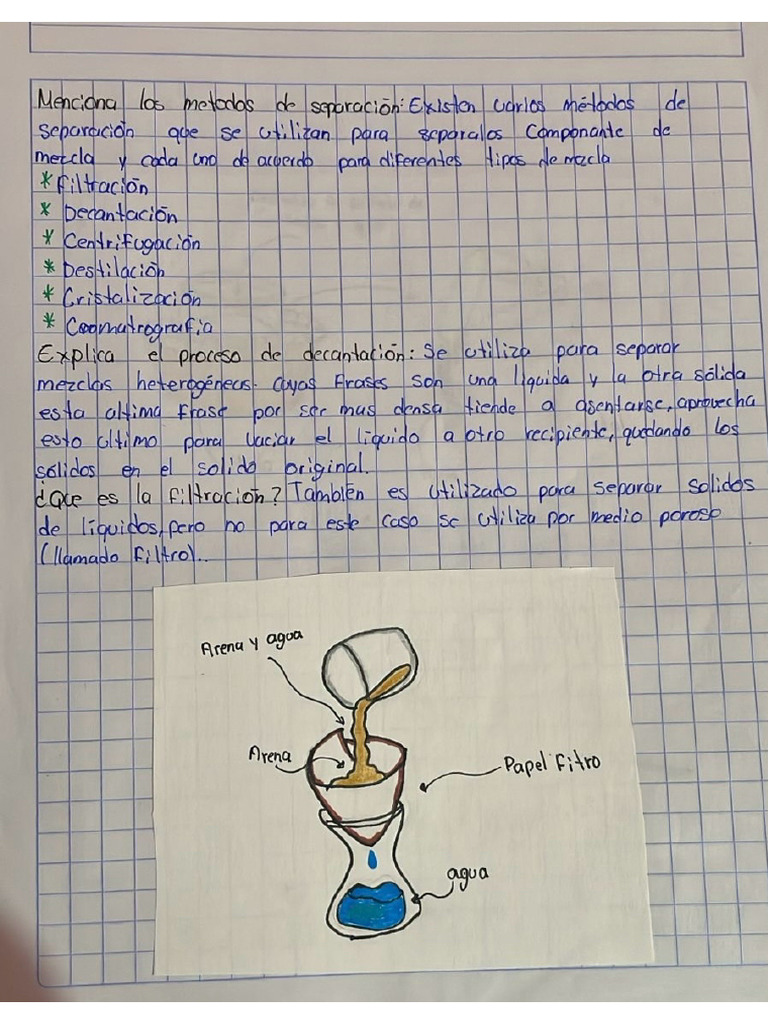 Menciona los metodos de separación: Existen varios métodos de
separación que se utilizan para separalos Componante de
mezcla y cada uno de acuerdo para diferentes tipos de mezcla
* Filtración
* Decantación
* Centrifugación
* Destilación
* Cristalización
* Coomatrografia
Explica el proceso de decantación: Se utiliza para separar
mezclas heterogéneas. Cuyas Frases son una líquida y la otra sólida
esta ultima Frase por ser mas densa tiende a asentarse, aprovecha
esto ultimo para vaciar el líquido a otro recipiente, quedando los
sólidos en el solido original.
¿Que es la Filtración? También es utilizado para separar solidos
de líquidos, pero no para este caso se utiliza por medio poroso
(llamado Filtro)..
Arena y agua
Arena
Papel Fitro
agua